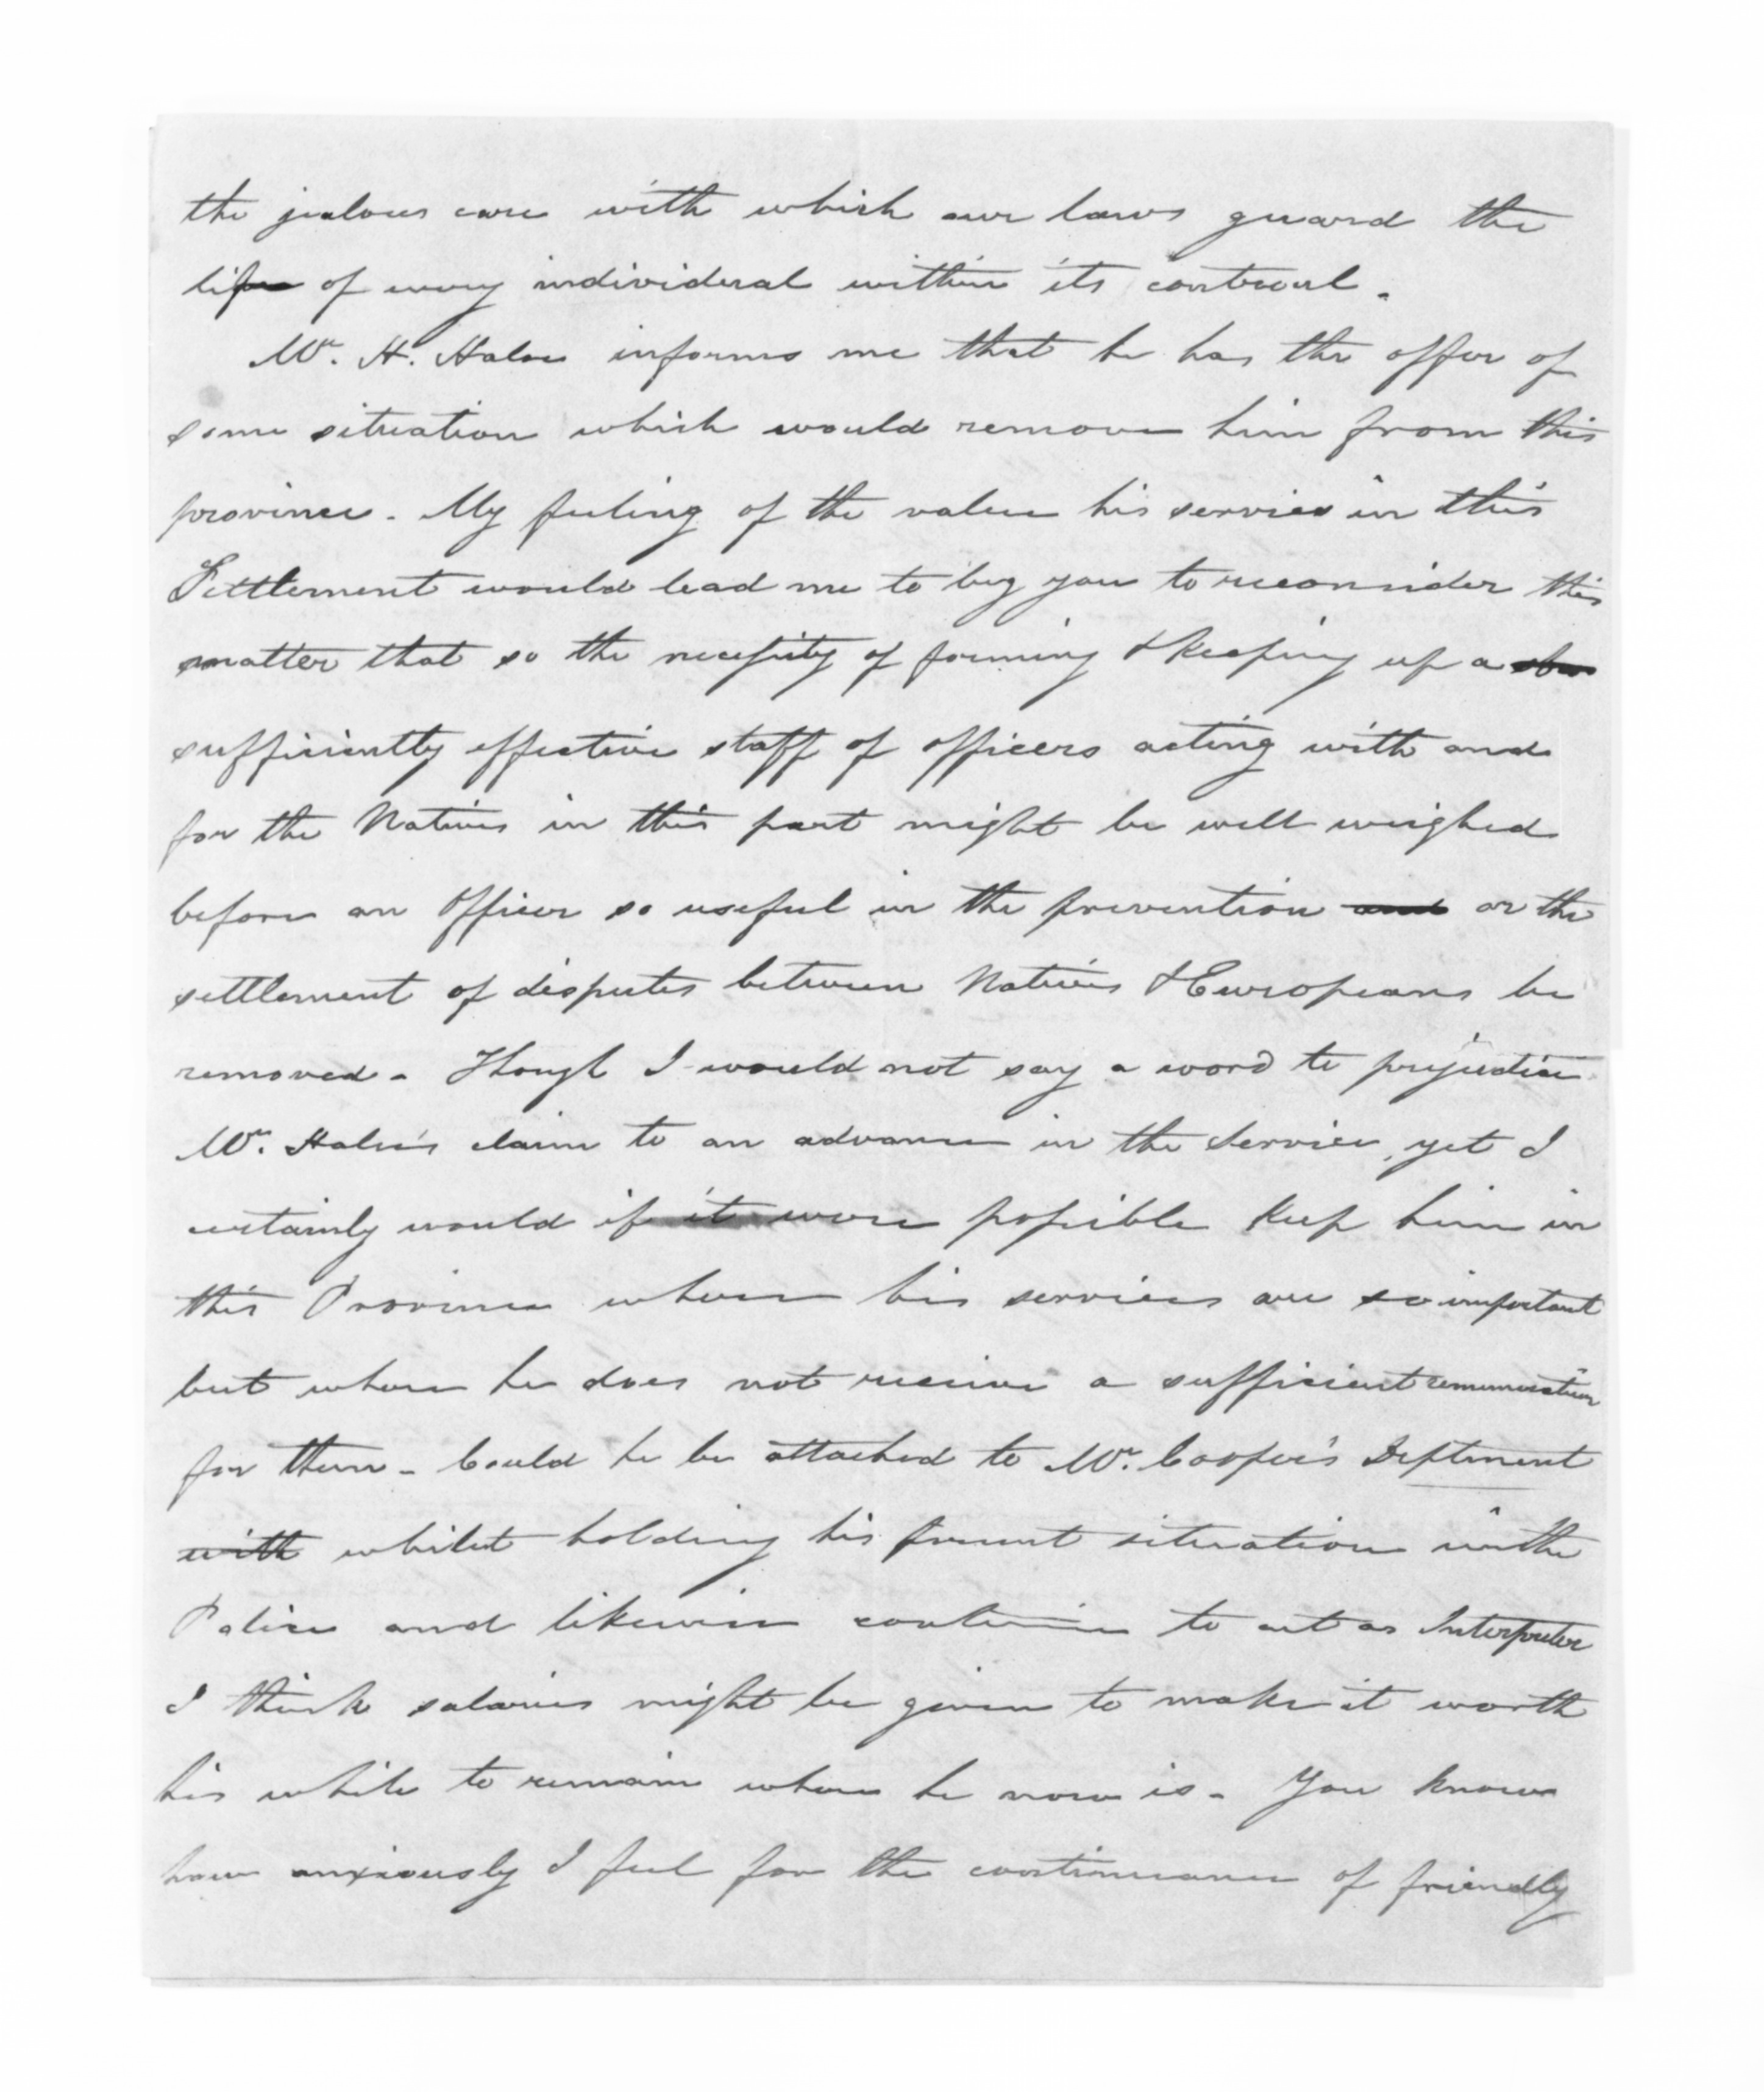 the jealous care with which our laws guard the
life of every individual within its controul.
Mr. H. Halse informs me that he has the offer of
some situation which would remove him from this
province. My feeling of the value his services in this
Settlement would lead me to beg you to reconsider this
matter that so the necessity of forming & keeping up a
sufficiently effective staff of officers acting with and
for the Natives in this part might be well weighed
before an Officer so useful in the prevention and or the
settlement of disputes between Natives & Europeans be
removed - Though I would not say a word to prejudice
Mr. Halse's claim to an advance in the Service, yet I
certainly would if it were possible keep him in
this Province where his services are so important
but where he does not receive a sufficient remuneration
for them - Could he be attached to Mr. Cooper's Deptment
with whilst holding his present situation in the
Police and likewise continue to act as Interpreter
I think salaries might be given to make it worth
his while to remain where he now is - You know
how anxiously I feel for the continuance of friendly